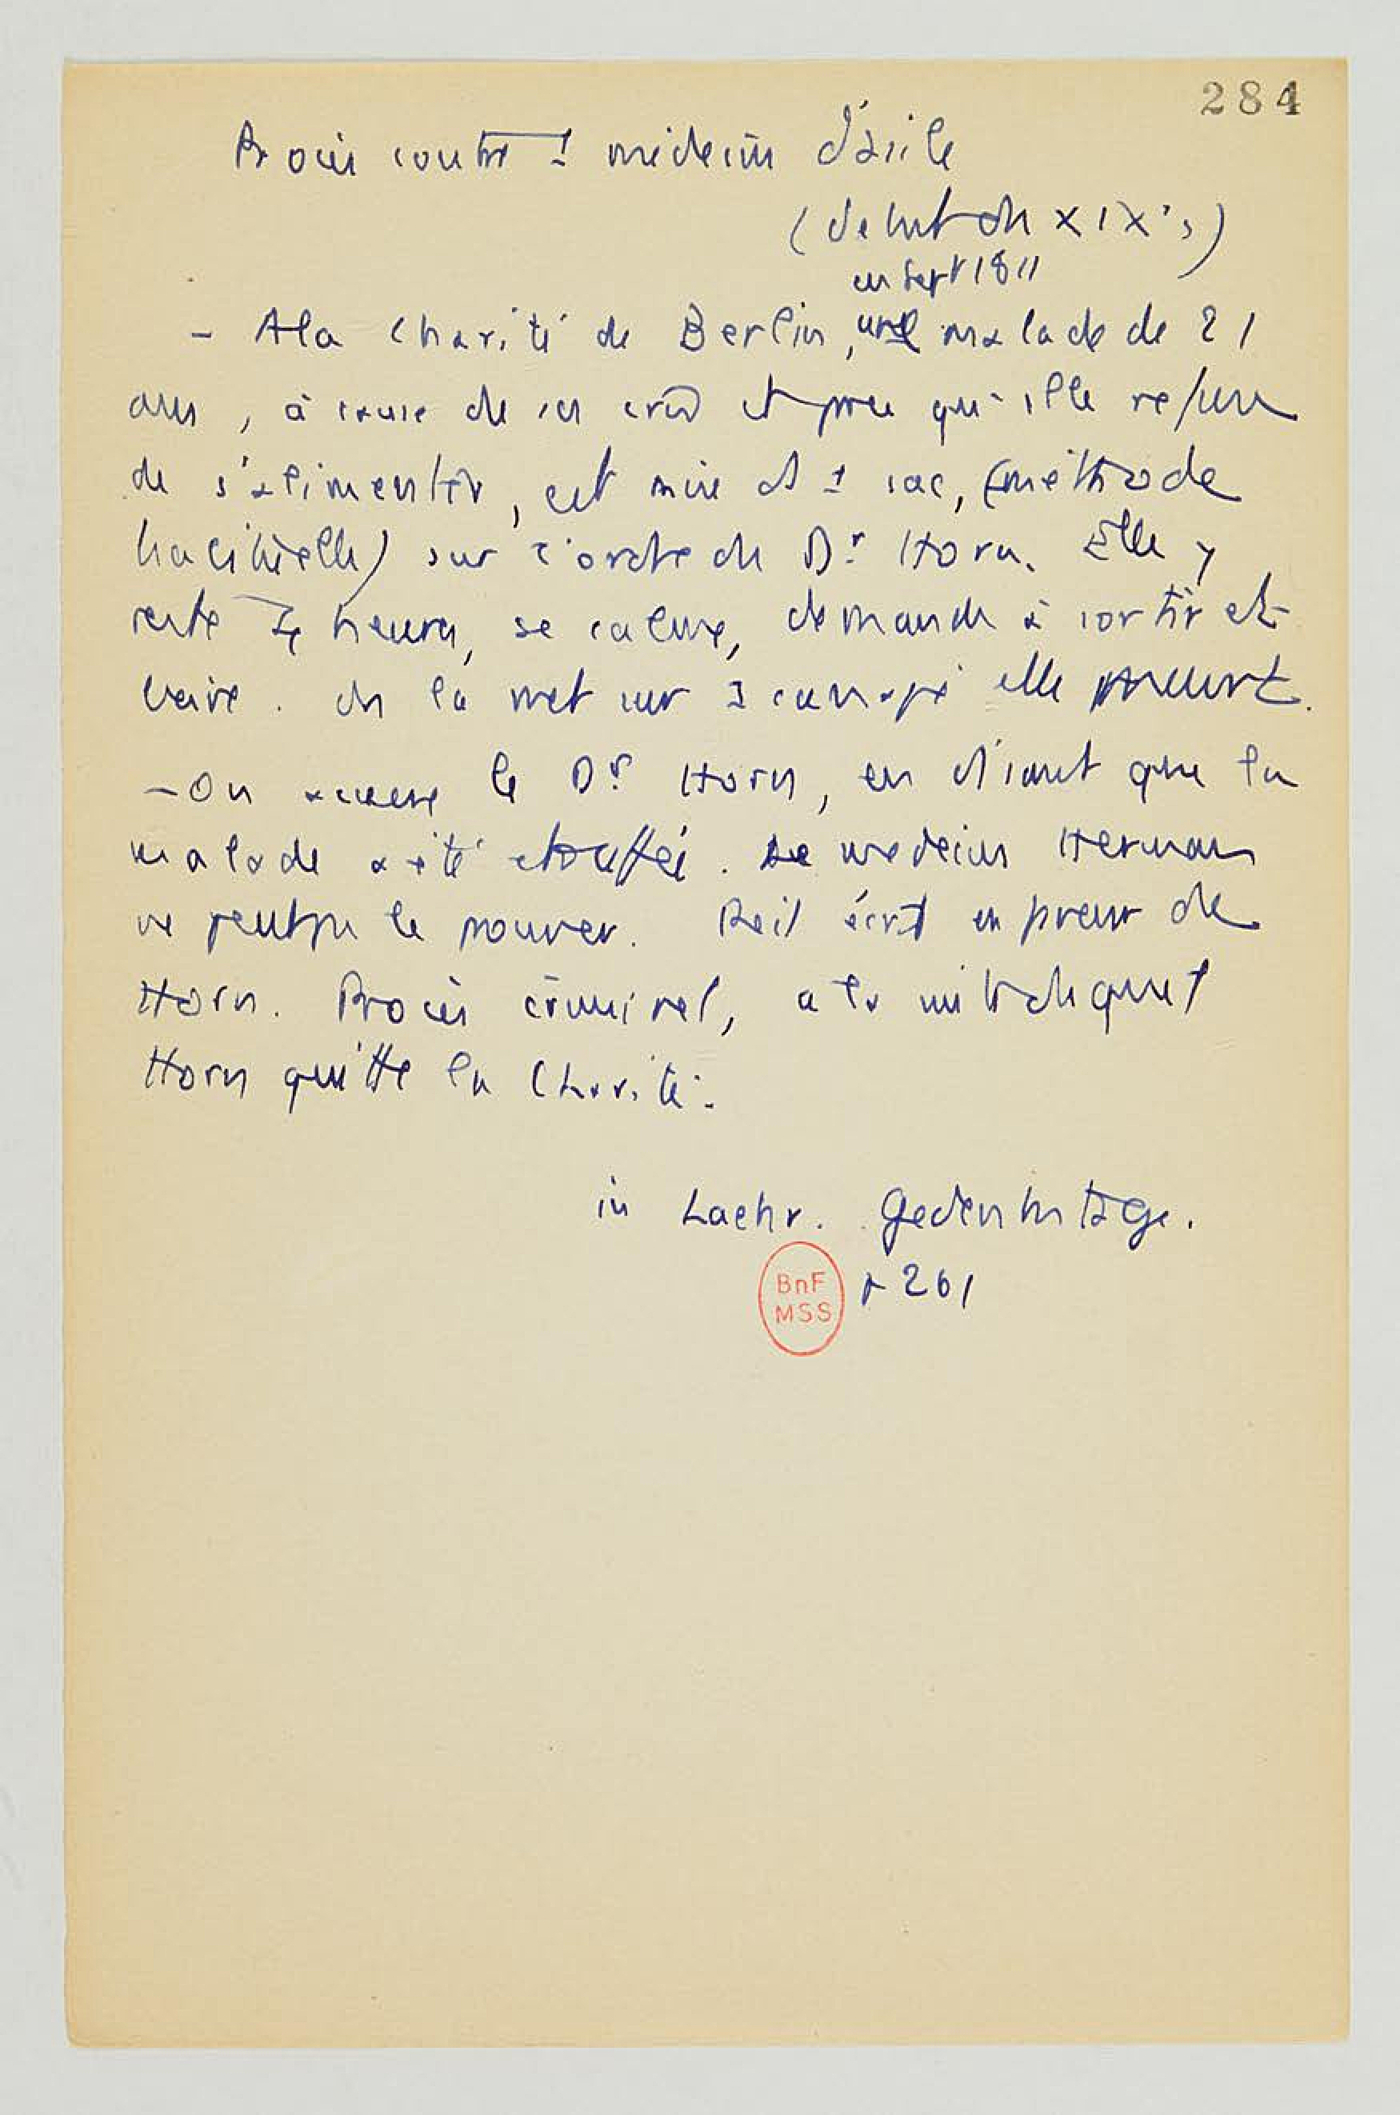 284
Procès contre 1 médecin d'asile
(début du XIXe s)
en Sept 1811
- A la Charité de Berlin, une malade de 21
ans, à cause de ses cris et parce qu'elle refuse
de s'alimenter, est mise ds 1 sac, (méthode
habituelle) sur l'ordre du Dr Horn. Elle y
reste heures, se calme, demande à sortir et
boire. On la met sur 1 canapé elle meurt.
- On accuse le Dr Horn, en disant que la
malade a été étouffée. Le médecin Herman
ne peut pas le prouver. Reil écrit en faveur de
Horn. Procès criminel, à la suite duquel
Horn quitte la Charité.
in Laehr. Gedenktage.
p 261
BnF
MSS